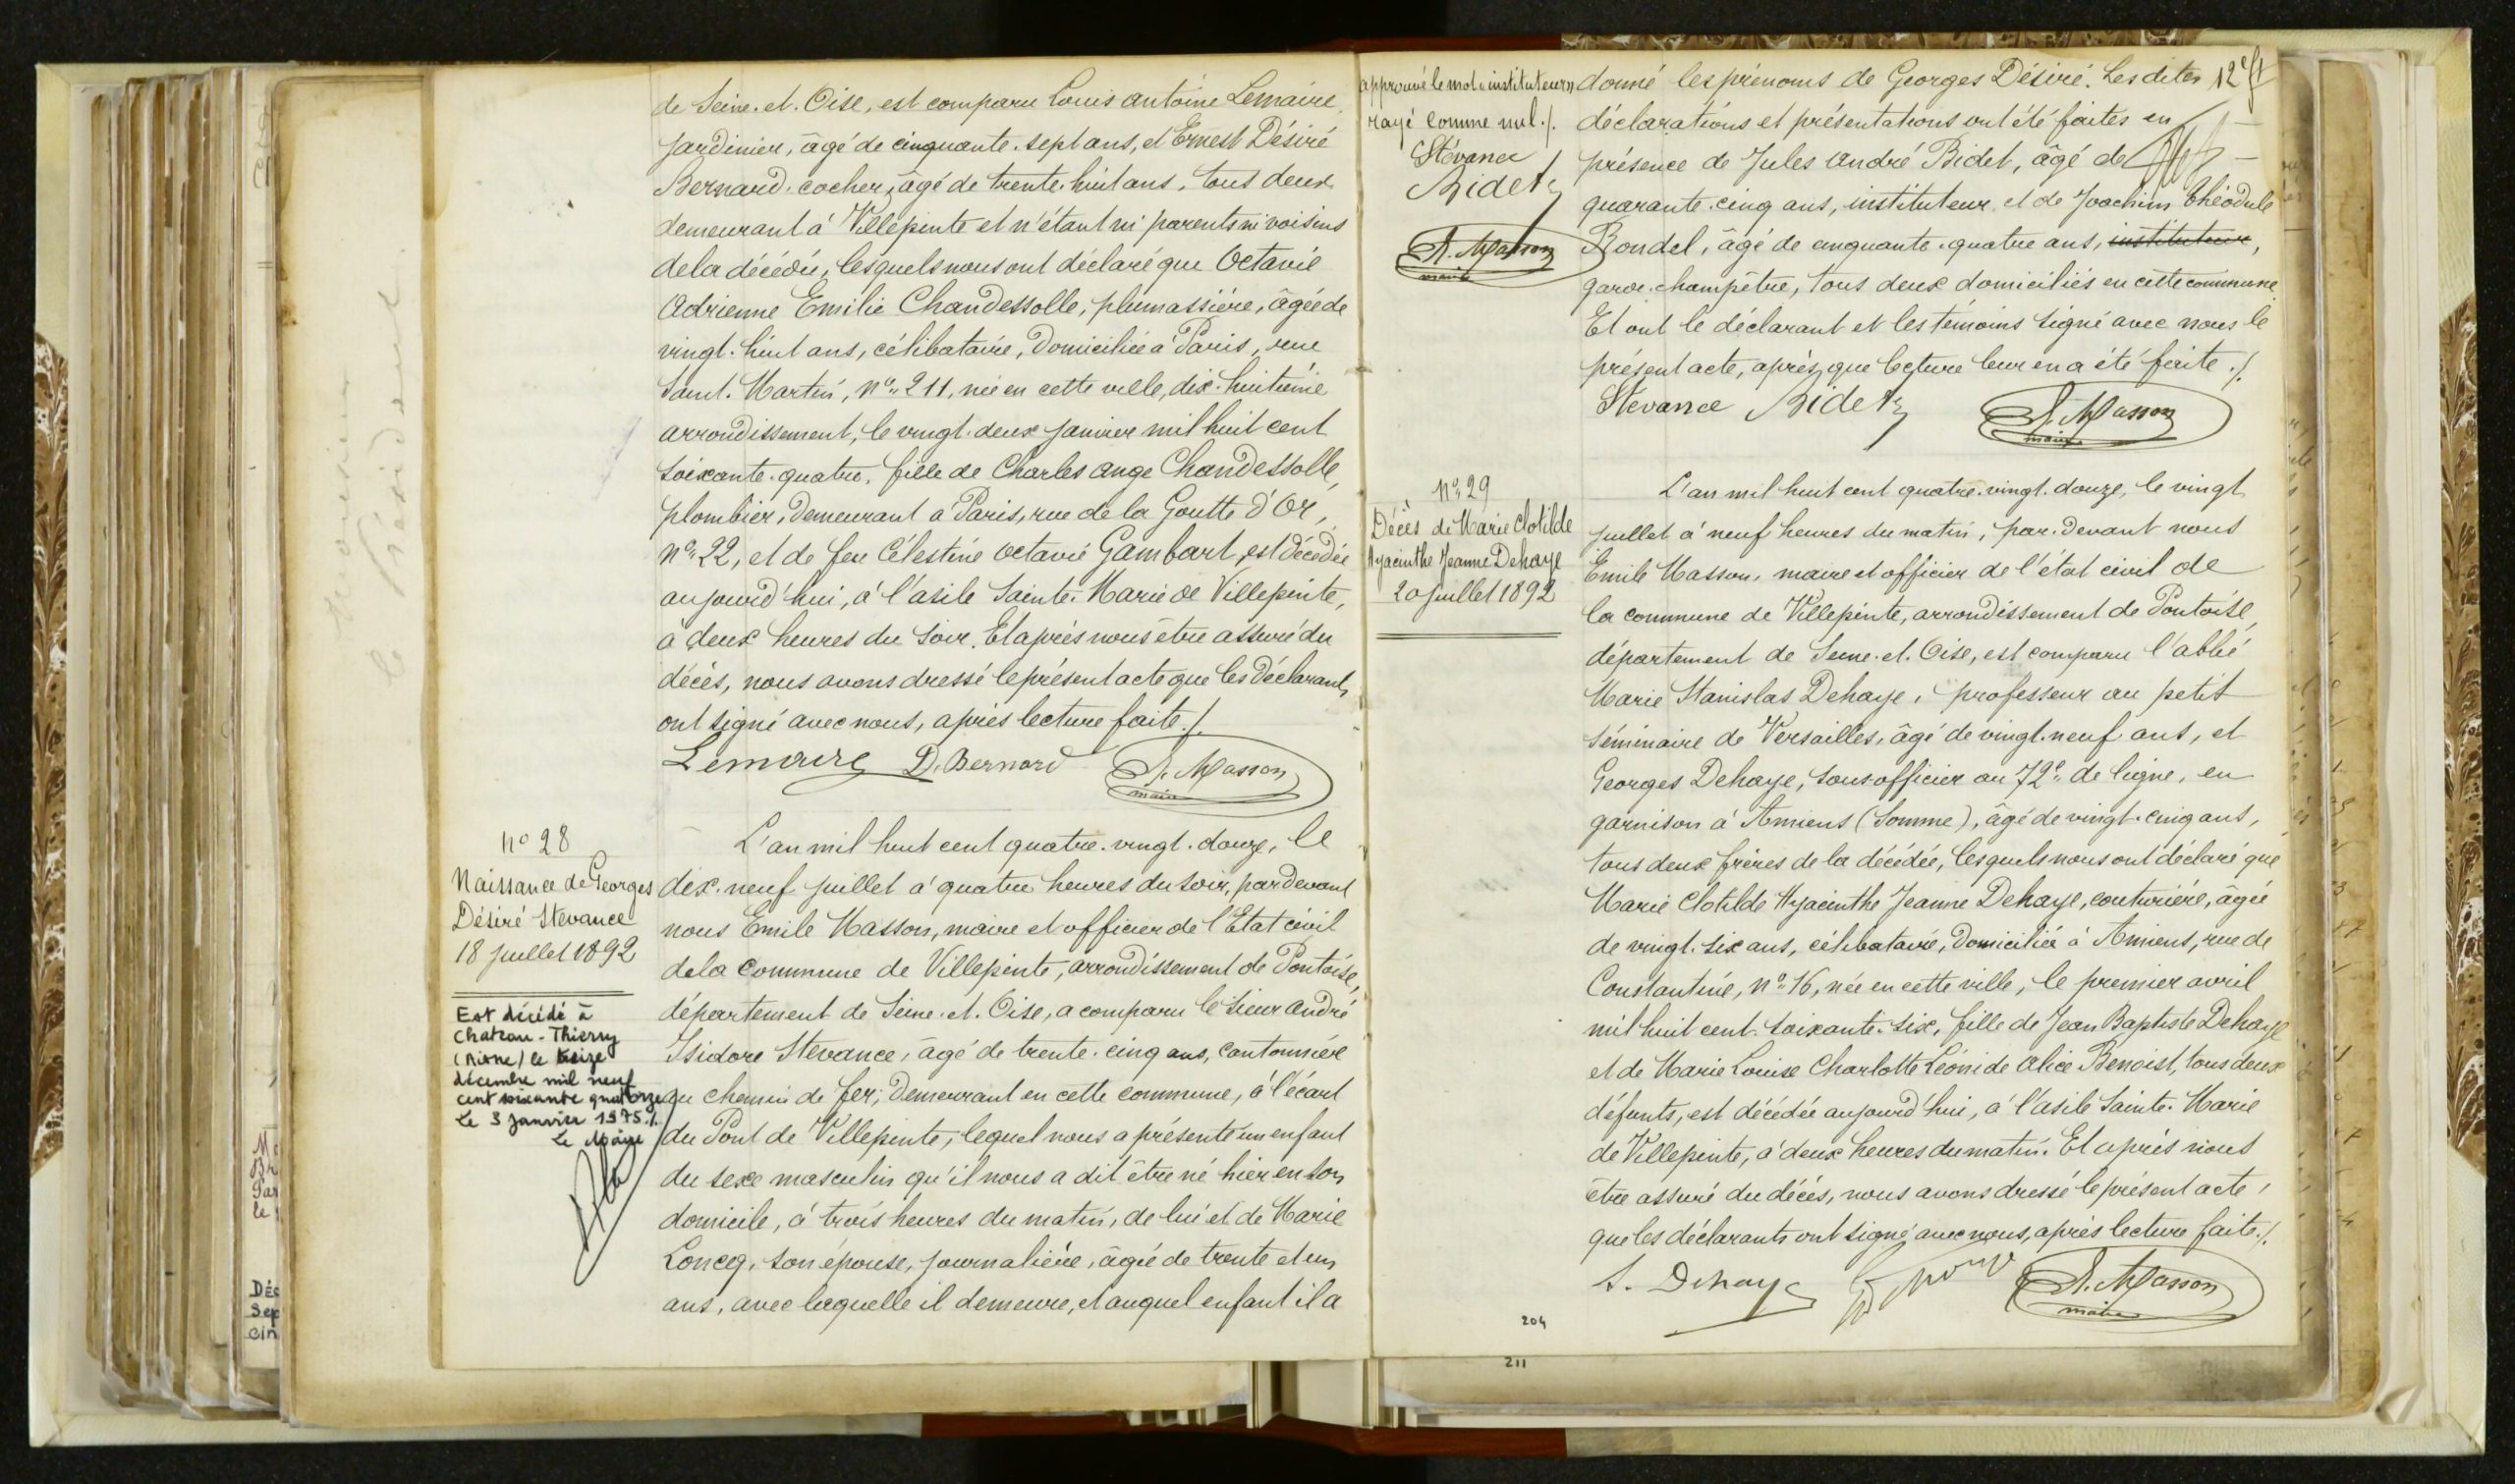 de Seine. et. Oise, est comparu Louis antoine Lemaire
jardinier, âgé de cinquante. sept ans, et Ernest Désiré
Bernard. cocher, âgé de trente. huit ans, tous deux
demeurant à Villepinte et n'étant ni parents ni voisins
de la décédée, lesquels nous ont déclaré que Octavie
Adrienne Emilie Chandessolle, plumassière, âgée de
vingt. huit ans, célibataire, domiciliée à Paris, rue
Saint. Martin, no. 211, née en cette ville, dix. huitième
arrondissement, le vingt. deux janvier mil huit cent
soixante. quatre. fille de Charles ange Chandessolle,
plombier, demeurant à Paris, rue de la Goutte d'Or,
no. 22, et de feu Célestine octavie Gambart, est décédée
aujourd'hui, à l'asile Sainte. Marie de Villepinte,
à deux heures du soir. Et après nous être assuré du
décès, nous avons dressé le présent acte que les déclarants
ont signé avec nous, après lecture faite ./.
Lemaire D. Bernard E. Masson
maire
no 28
Naissance de Georges
Désiré Stevance
18 juillet 1892
Est décédé à
Chateau-Thierry
(Aisne) le treize
décembre mil neuf
cent soixante quatorze
Le 3 Janvier 1975./.
Le Maire
L'an mil huit cent quatre. vingt. douze, le
dix. neuf juillet à quatre heures du soir, par devant
nous Emile Masson, maire et officier de l'Etat civil
de la Commune de Villepinte, arrondissement de Pontoise,
département de Seine. et. Oise, a comparu le sieur andré
Isidore Stevance, âgé de trente. cinq ans, cantonnier
au chemin de fer, demeurant en cette commune, à l'écart
du Pont de Villepinte, lequel nous a présenté un enfant
du sexe masculin qu'il nous a dit être né hier en son
domicile, à trois heures du matin, de lui et de Marie
Loncq, son épouse, journalière, âgée de trente et un
ans, avec laquelle il demeure, et auquel enfant il a
approuvé le mot « instituteur »
rayé comme nul ./.
Stévance
Bidet
E. Masson
maire
donné les prénoms de Georges Désiré. Les dites
12e ft
déclarations et présentations ont été faites en
présence de Jules andré Bidet, âgé de
quarante. cinq ans, instituteur et de Joachim Théodule
Rondel, âgé de cinquante. quatre ans, instituteur,
garde. champêtre, tous deux domiciliés en cette commune
Et ont le déclarant et les témoins signé avec nous le
présent acte, après que lecture leur en a été faite ./.
Stevance Bidet E. Masson
maire
no. 29
Décès de Marie Clotilde
Hyacinthe Jeanne Dehaye
20 juillet 1892
L'an mil huit cent quatre. vingt. douze, le vingt
juillet à neuf heures du matin, par. devant nous
Emile Masson, maire et officier de l'état civil de
la commune de Villepinte, arrondissement de Pontoise,
département de Seine. et. Oise, est comparu l'abbé
Marie Stanislas Dehaye, professeur au petit
séminaire de Versailles, âgé de vingt. neuf ans, et
Georges Dehaye, sous officier au 72e. de ligne, en
garnison à Amiens (Somme), âgé de vingt. cinq ans,
tous deux frères de la décédée, lesquels nous ont déclaré que
Marie Clotilde Hyacinthe Jeanne Dehaye, couturière, âgée
de vingt. six ans, célibataire, domiciliée à Amiens, rue de
Constantine, no. 16, née en cette ville, le premier avril
mil huit cent. soixante. six, fille de Jean Baptiste Dehaye
et de Marie Louise Charlotte Léonide Alice Benoist, tous deux
défunts, est décédée aujourd'hui, à l'asile Sainte. Marie
de Villepinte, à deux heures du matin. Et après nous
être assuré du décès, nous avons dressé le présent acte,
que les déclarants ont signé avec nous, après lecture faite ./.
S. Dehaye E. Masson
maire
204
211